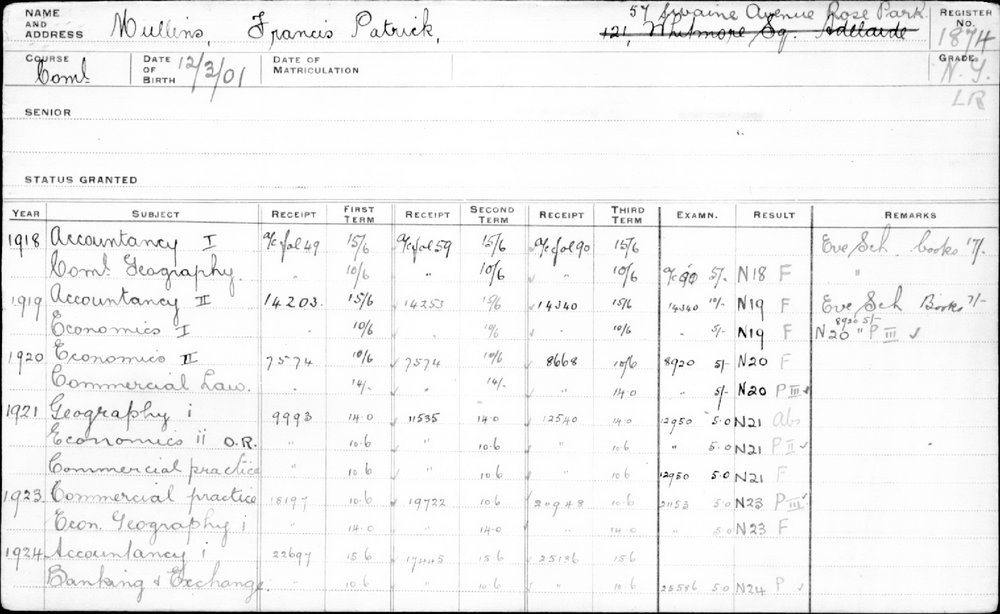 NAME AND ADDRESS Mullins, Francis Patrick, 57 Swaine Avenue Rose Park REGISTER No. 1874
121, Whitmore Sq. Adelaide
COURSE Coml. DATE OF BIRTH 12/3/01 DATE OF MATRICULATION GRADE N.Y.
LR
SENIOR
STATUS GRANTED
YEAR SUBJECT RECEIPT FIRST TERM RECEIPT SECOND TERM RECEIPT THIRD TERM EXAMN. RESULT REMARKS
1918 Accountancy I a/c fol 49 15/6 a/c fol 59 15/6 a/c fol 90 15/6 Eve Sch. books 17/-
Coml. Geography. " 10/6 " 10/6 " 10/6 a/c 90 5/- N18 F "
1919 Accountancy II 14203. 15/6 14253 15/6 14340 15/6 14340 N19 F Eve Sch Books 7/-
Economics I " 10/6 " 10/6 " 10/6 " 5/- N19 F N20 8920 5/- " P III ✓
1920 Economics II 7574 10/6 7574 10/6 8668 10/6 8920 5/- N20 F
Commercial Law. " 14/- " 14/- " 14.0 " 5/- N20 P III ✓
1921 Geography i 9993 14.0 11535 14.0 12540 14.0 12950 5.0 N21 Abs
Economics ii O.R. " 10.6 " 10.6 " 10.6 " 5.0 N21 P II ✓
Commercial practice " 10.6 " 10.6 " 10.6 12950 5.0 N21 F
1923 Commercial practice 18197 10.6 19722 10.6 20948 10.6 21153 5.0 N23 P III ✓
Econ. Geography i " 14.0 " 14.0 " 14.0 " 5.0 N23 F
1924 Accountancy i 22697 15.6 17445 15.6 25136 15.6
Banking & Exchange. " 10.6 " 10.6 " 10.6 25586 5.0 N24 P ✓